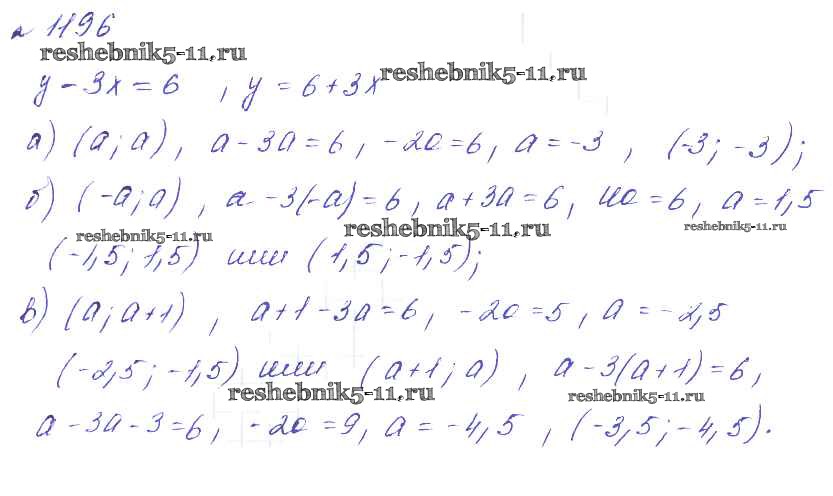 № 1196
reshebnik5-11.ru
y - 3x = 6 , y = 6 + 3x reshebnik5-11.ru
а) (a; a), a - 3a = 6, -2a = 6, a = -3 , (-3; -3);
б) (-a; a) , a - 3(-a) = 6, a + 3a = 6, 4a = 6, a = 1,5
reshebnik5-11.ru reshebnik5-11.ru reshebnik5-11.ru
(-1,5; 1,5) или (1,5; -1,5);
в) (a; a+1) , a+1 - 3a = 6, -2a = 5 , a = -2,5
(-2,5; -1,5) или (a+1; a) , a - 3(a+1) = 6,
reshebnik5-11.ru reshebnik5-11.ru
a - 3a - 3 = 6, -2a = 9, a = -4,5 , (-3,5; -4,5).